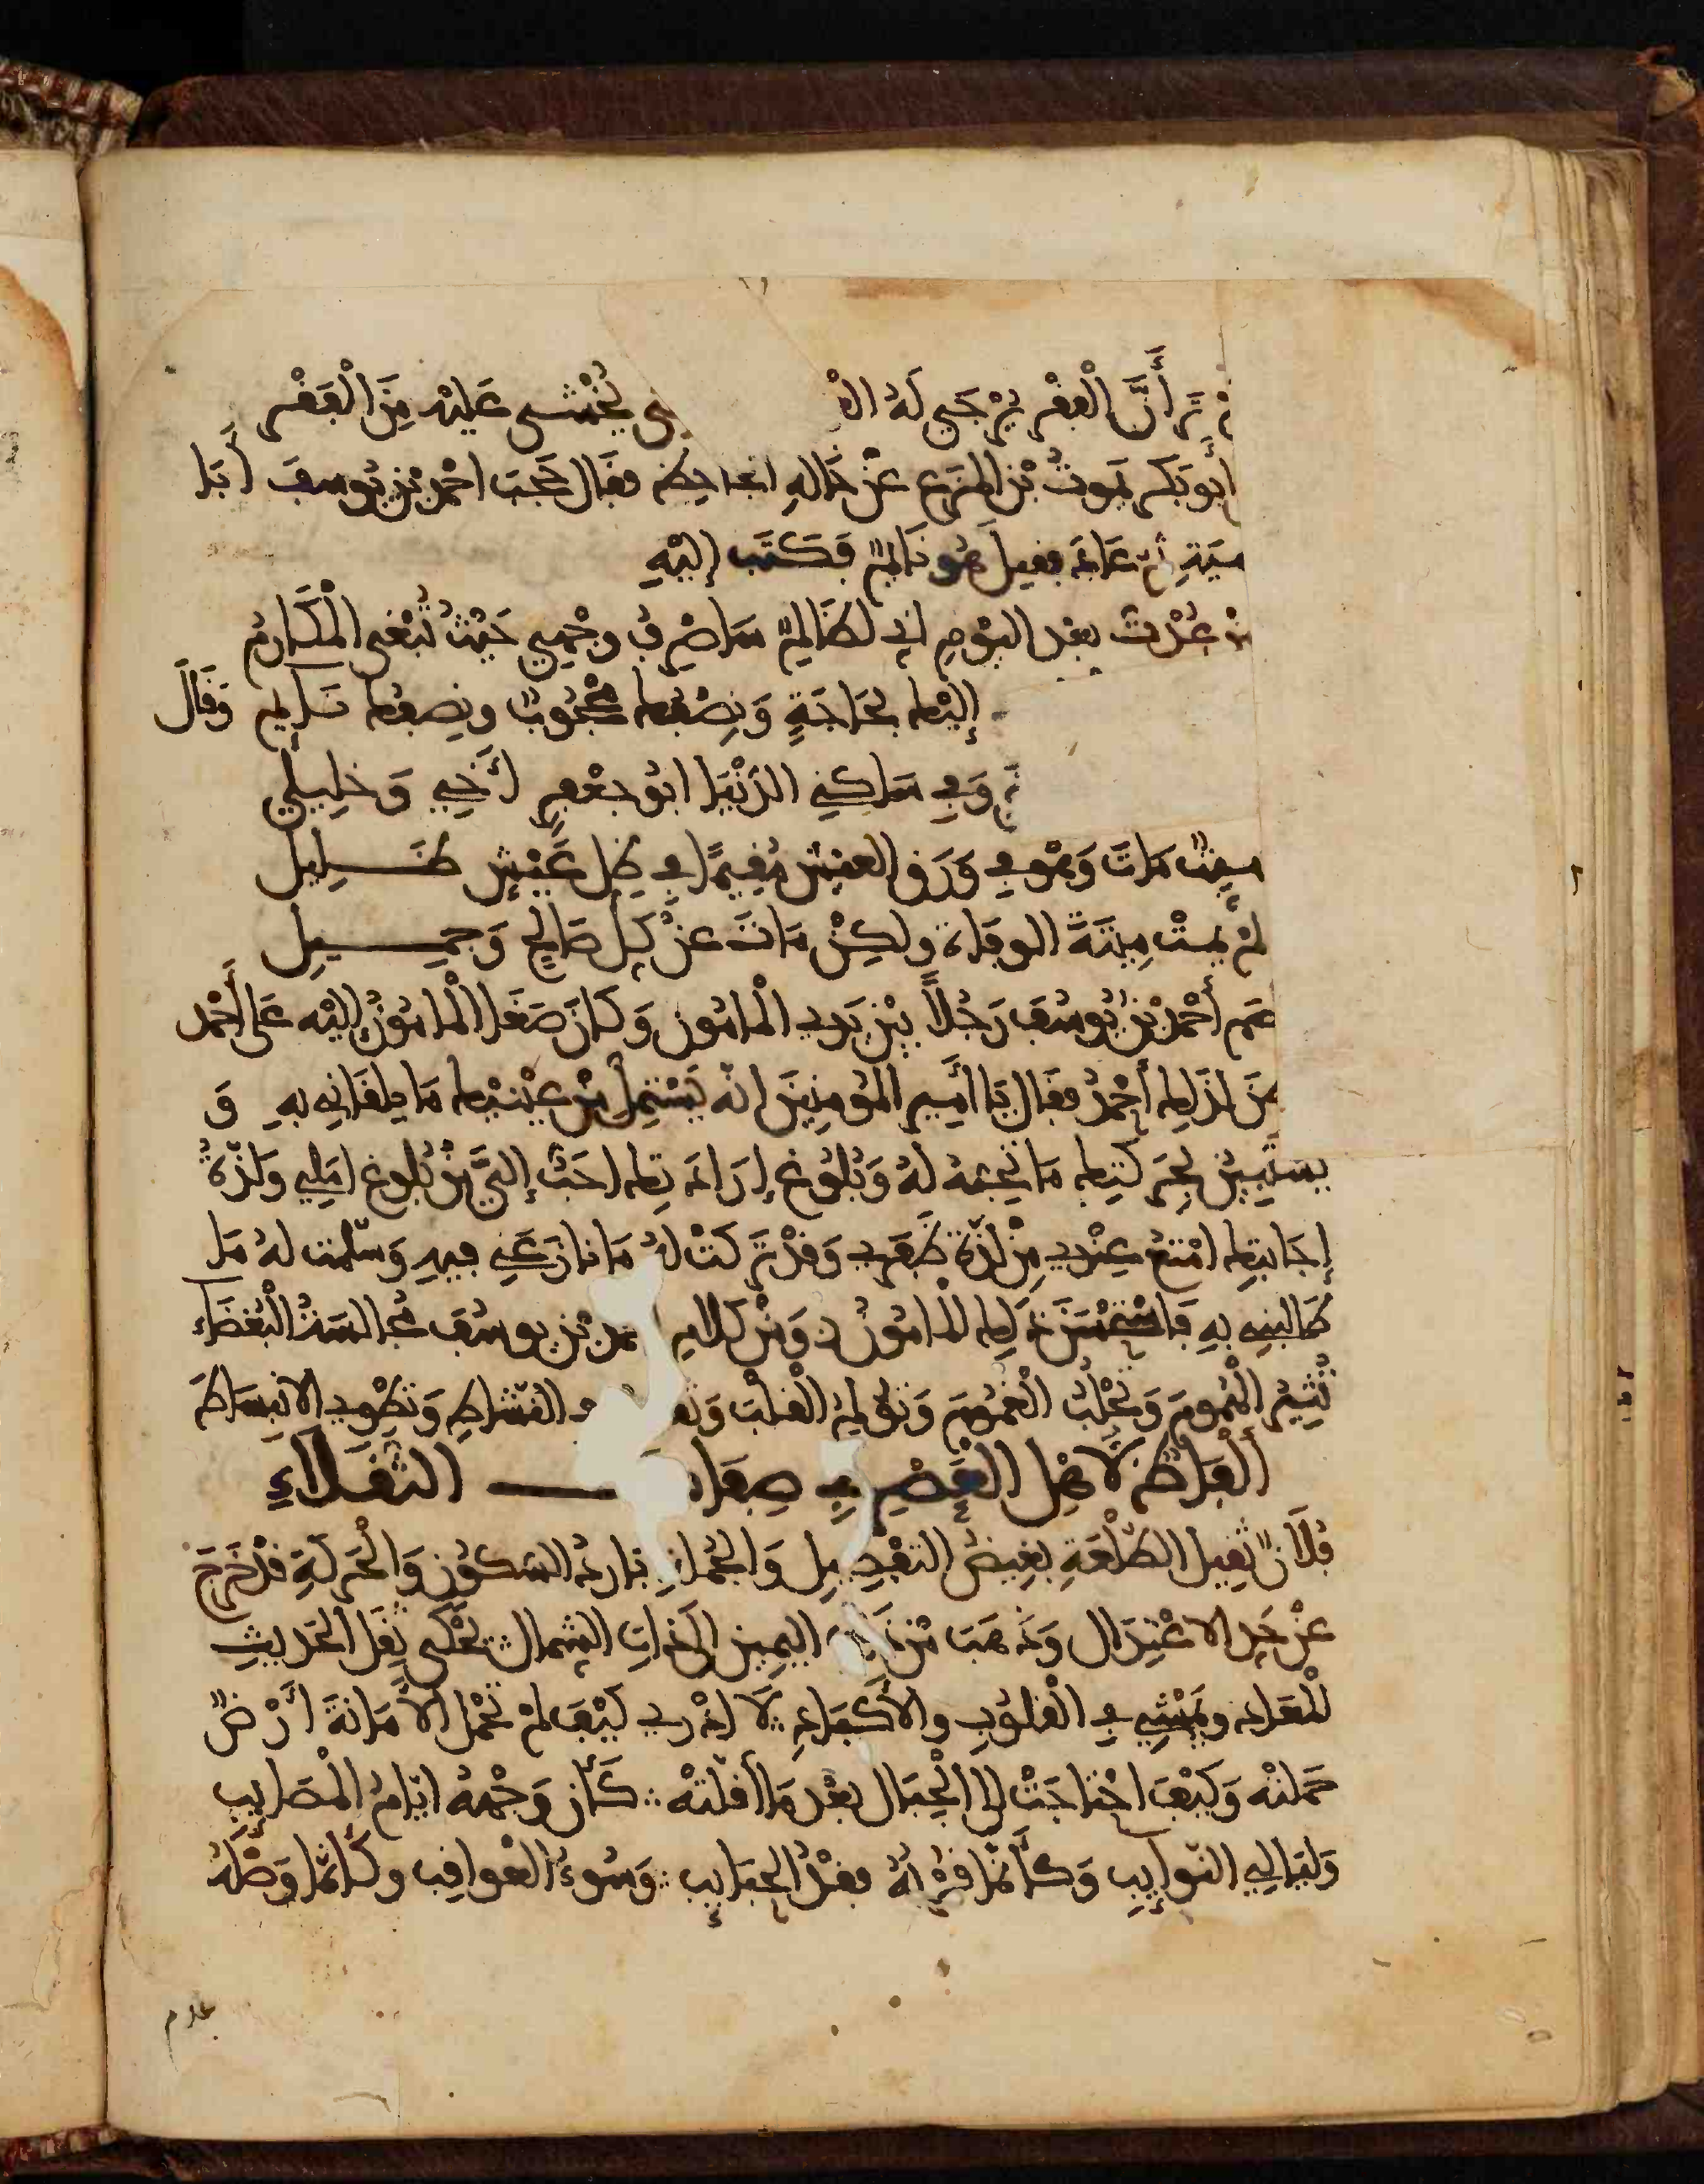 تر أَنَّ الْفقْر يُرْجَى لَهُ الْغ ى يُخْشى عَلَيْهِ مِنَ الْفَقْر
أبو بكر يموتُ بْن المزرع عنْ خَالهِ الجاحظ فقَال حَجَبَ احْمد بْن يُوسف أبَا
هية فقيل هُو نَائمٌ فَكَتَب إليْهِ
عُدْتُ بعْد اليَوْمِ اني لظَالِمٌ سَاصْرِفُ وجْهي حَيْثُ تُبْغى الْمَكَارمُ
إليْك بحَاجَةٍ وَنِصْفك مَحْجُوبٌ ونِصفك نَائِم وَقَالَ
وَفي سَاكِني الدّنْيَا ابُو جعْفرٍ أخِي وَخلِيلي
ميتٌ مَاتَ وَهْو في وَرَق العيْش مُقِيمًا في ظِلِّ عَيْشٍ ظَلِيل
لمْ يمتْ مِيتَةَ الوفَاة ولكِنْ مَاتَ عنْ كلِّ صَالحٍ وَجَمِيل
أحْمد بْن يُوسُفَ رَجُلاً بيْن يَدي الْمامُون وَكَانَ صَغَا الْمامُونُ إليْه عَلَى أحْمد
لذَلك أحْمدُ فقَال يَا أمِير المُومنِينَ انه يَسْتملِي مِنْ عيْنيْك مَا يلقَاني بهِ وَ
يستَبِينُ بحَركتِك مَا تُجنهُ لهُ وَبُلُوغ إرَادتِك احَبُّ إليَّ مِنْ بُلوغ امَلِي وَلذّةُ
إجَابتِك امْتعُ عِنْدي مِنْ لذّة ظَفَري وَقدْ تَرَكْتُ لهُ مَا نازعَني فيهِ وَسلّمت لهُ مَا
طَالبني بهِ فَاسْتحْسَنَ ذَلك الْمامُونُ وَمِنْ كَلام مد بْن يوسُفَ مُجَالسَةُ الْبُغضَاء
تُثِيرُ الْهُمومَ وَتَجْلُبُ الْغمُومَ وَتُولمُ الْقلْبَ وَتق ح في النّشَاطِ وَتَطْوي الانبِسَاطَ
أَلْفَاظٌ لأهْل الْعَصْرِ في صِفَات الثّقَلاَءِ
فُلاَنٌ ثقِيل الطّلْعَةِ بغِيضُ التفْصِيل وَالجُمْلة بارِدُ السّكُونِ وَالْحَركةِ قدْ خَرَجَ
عنْ حَدِّ الاعْتِدَال وَذهَبَ مِنْ ذَات اليمِين الَى ذاتِ الشِّمال يحْكي ثِقَل الْحَدِيثِ
الْمعَاد ويَمْشِي في الْقلُوبِ والأكْبَادِ لاَ ادْري كَيْفَ لمْ تحْمل الأَمَانةَ أَرْضٌ
حَمَلتْه وَكَيْفَ احْتاجَتْ الى الْجِبَال بعْد مَا أقلّتْهُ كَأنّ وَجْههُ ايّامُ الْمصَايب
وَليَالِي النّوايِبِ وَكأنّمَا قُرْبهُ فقْدُ الحبَايب وَسُوءُ العْواقِب وكأنّمَا وَصْلهُ
عدم